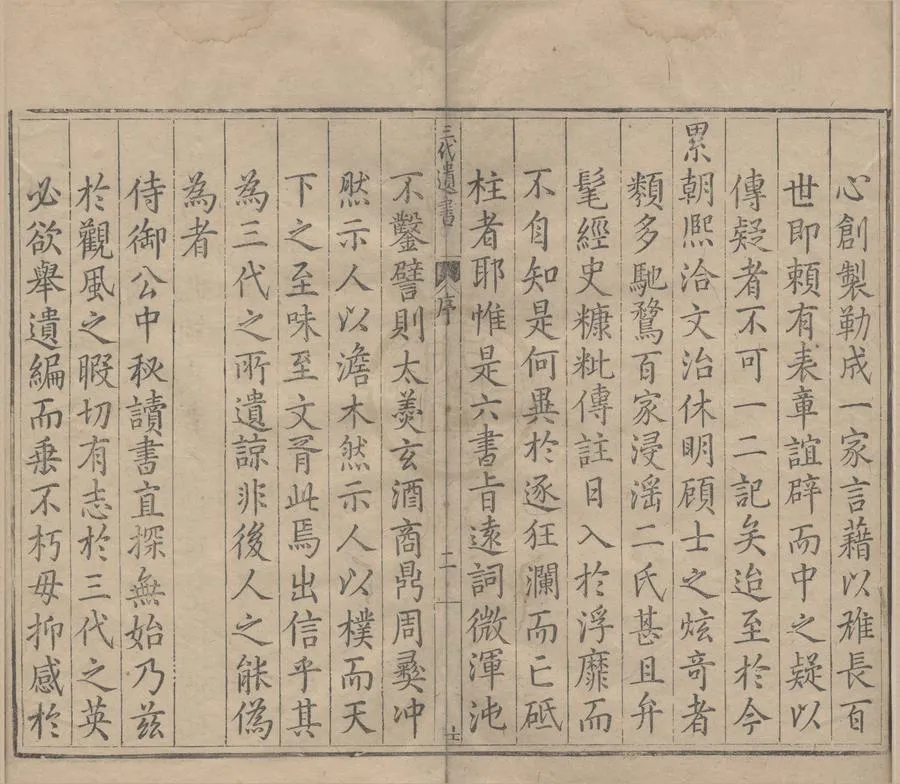 心創製勒成一家言藉以雄長百
世即賴有表章誼辟而中之疑以
傳疑者不可一二記矣迨至於今
累朝熈洽文治休明顧士之炫奇者
類多馳騖百家浸淫二氏甚且弁
髦經史糠粃傳註日入於浮靡而
不自知是何異於逐狂瀾而亡砥
柱者耶惟是六書旨遠詞微渾沌
三代遺書
序
二
不鑿譬則太羹玄酒商鼎周彜冲
然示人以澹木然示人以樸而天
下之至味至文胥此焉出信乎其
為三代之所遺諒非後人之能偽
為者
侍御公中秘讀書直探無始乃兹
於觀風之暇切有志於三代之英
必欲舉遺編而垂不朽毋抑感於